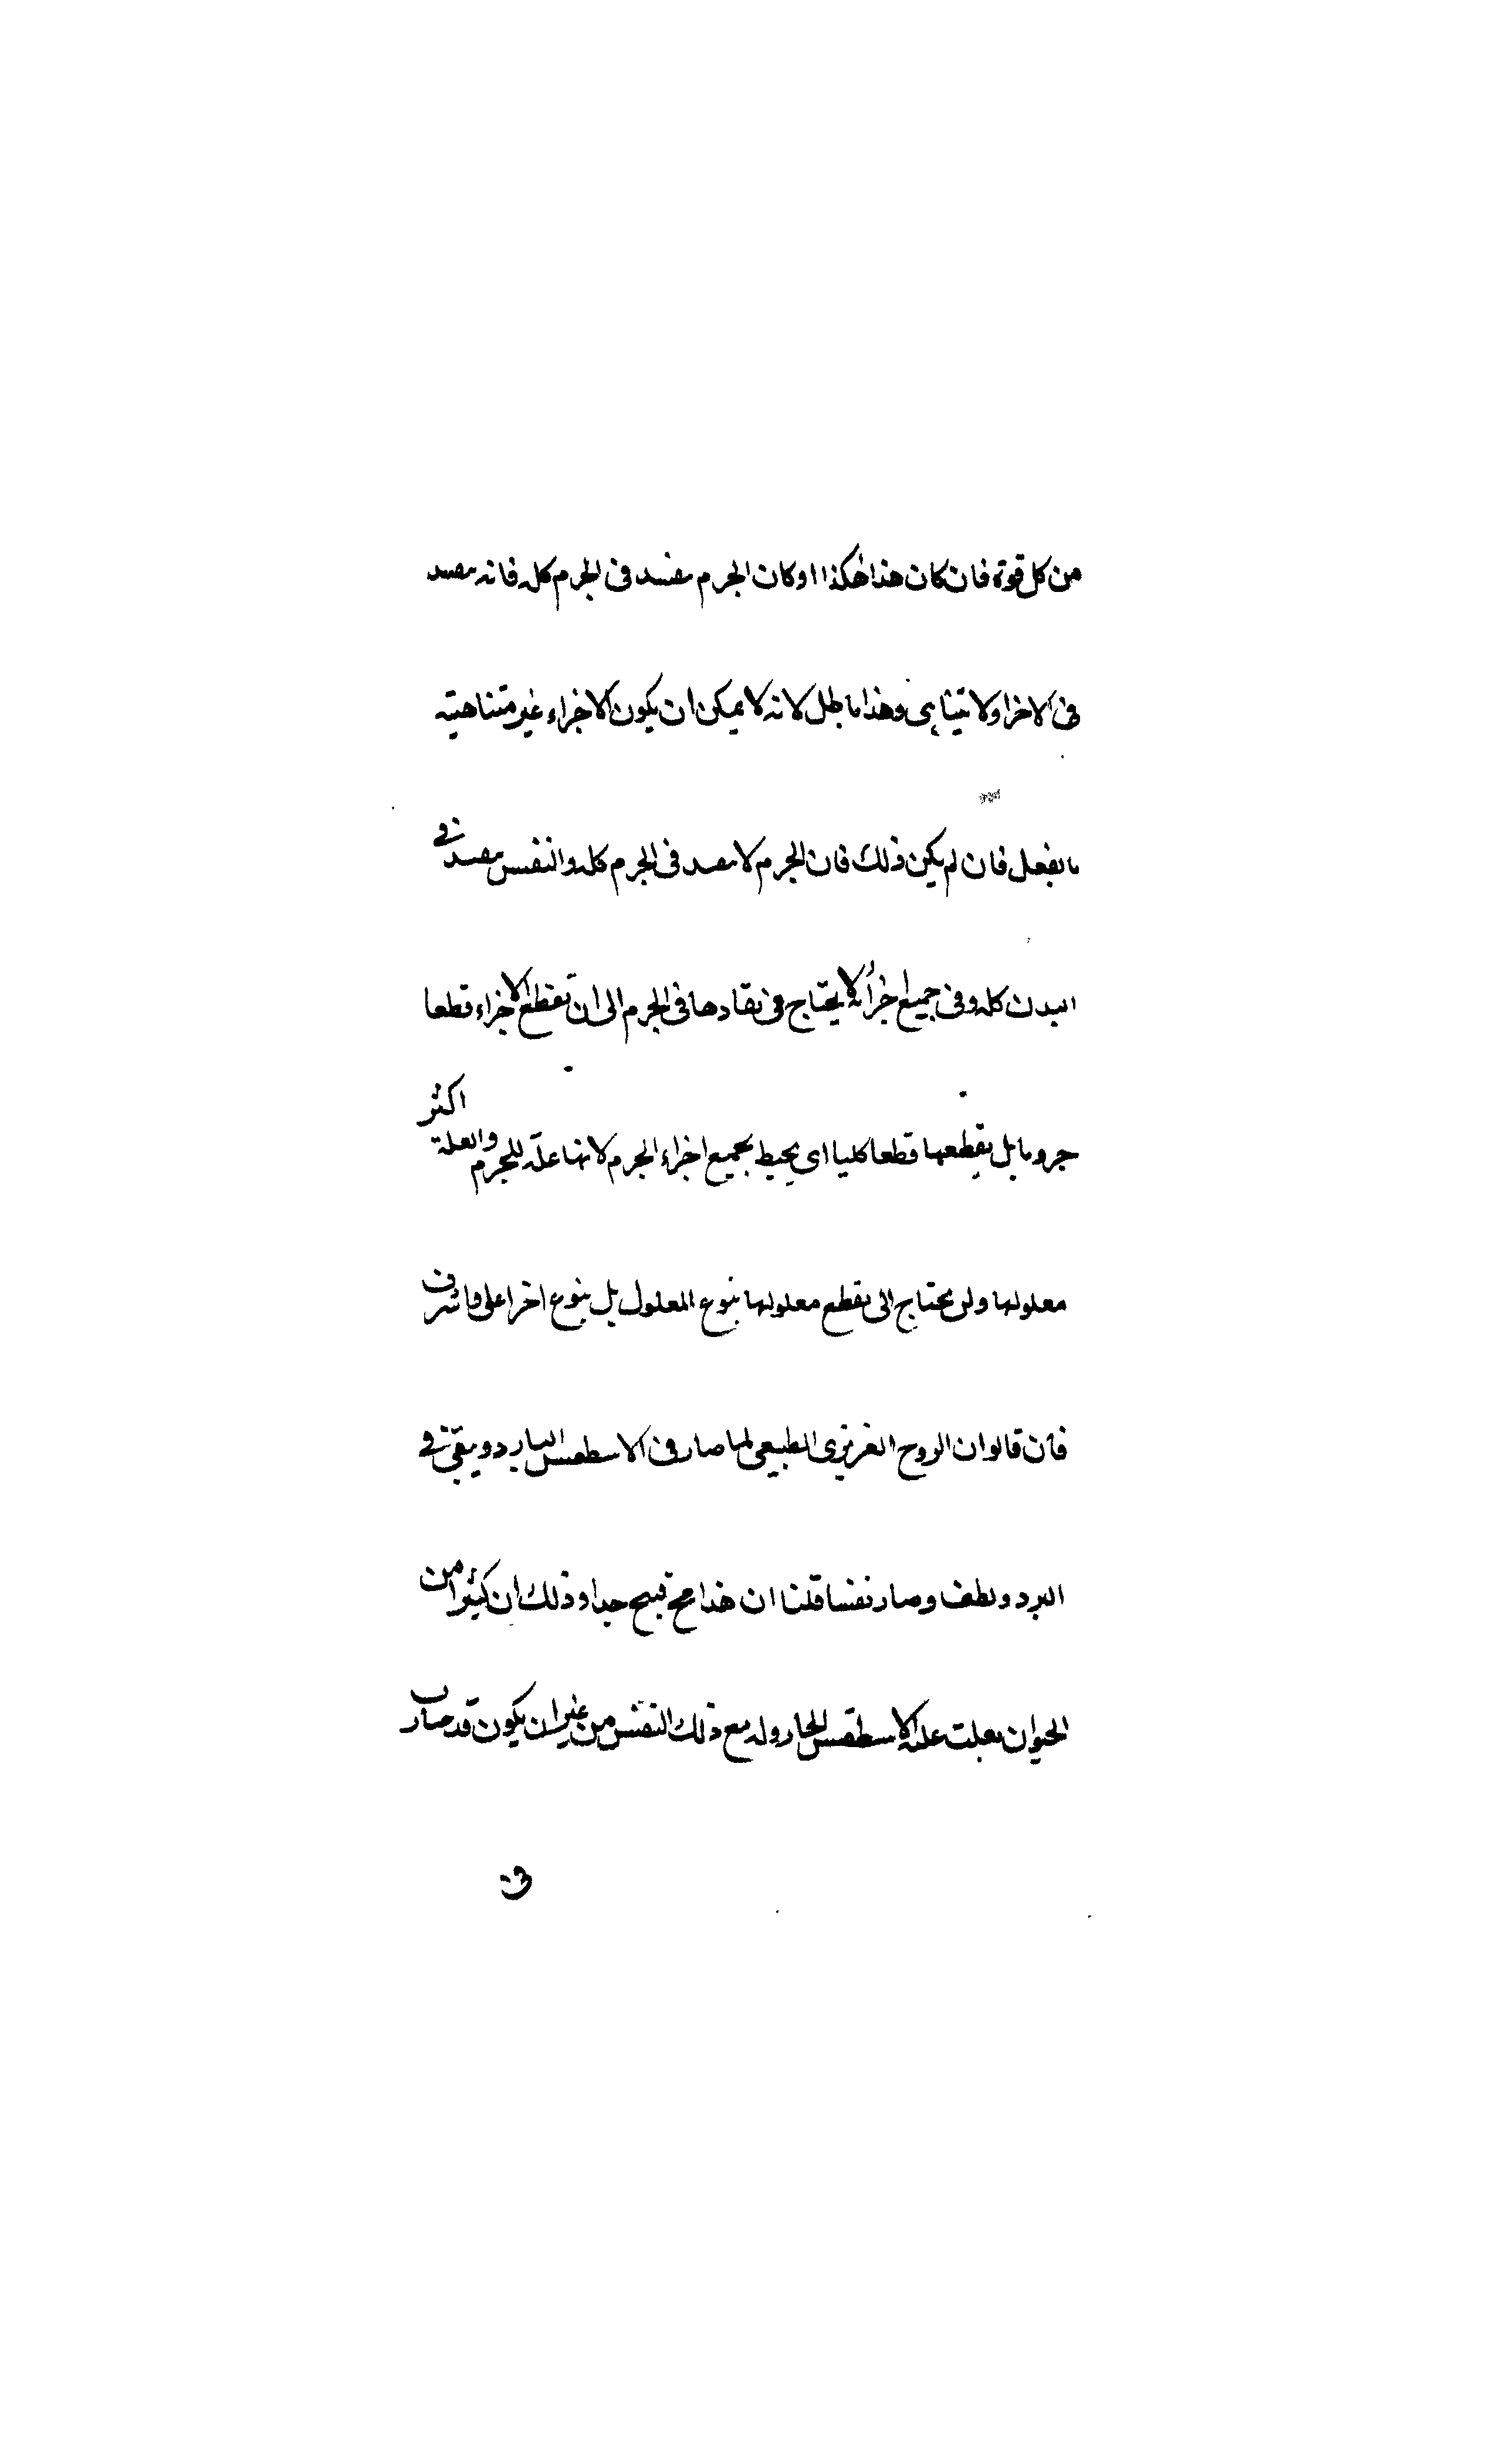 من كل قوة فان كان هذا هكذا او كان الجرم ينفسد فى الجرم كله فانه ينفسد
فى الاخرا ولا تيناهى وهذا باطل لانه لا يمكن ان يكون الاخراء غير متناهيته
بالفعل فان لم يكن ذلك فان الجرم لا ينفسد فى الجرم كله والنفس ينفسد فى
البدن كله وفى جميع اخرائه لا يحتاج فى نفادها فى الجرم الى ان تقطع الاخراء قطعا
جروما بل يقطعها قطعا كليا اى يحيط بجميع اخراء الجرم لانها علة للجرم والعلة اكثر
معلولها ولن يحتاج الى يقطع معلولها بنوع المعلول بل بنوع اخر اعلى واشرف
فان قالوا ان الروح الغريزى الطبيعى لما صار فى الاسطقس البارد ويبقى فى
البرد ولطف وصار نفسا قلنا ان هذا مح قبيح جدا وذلك ان كثيرا من
الحيوان يغلبت عليه الاسطقس الحار وله مع ذلك النفس من غير ان يكون قد صارب
فى